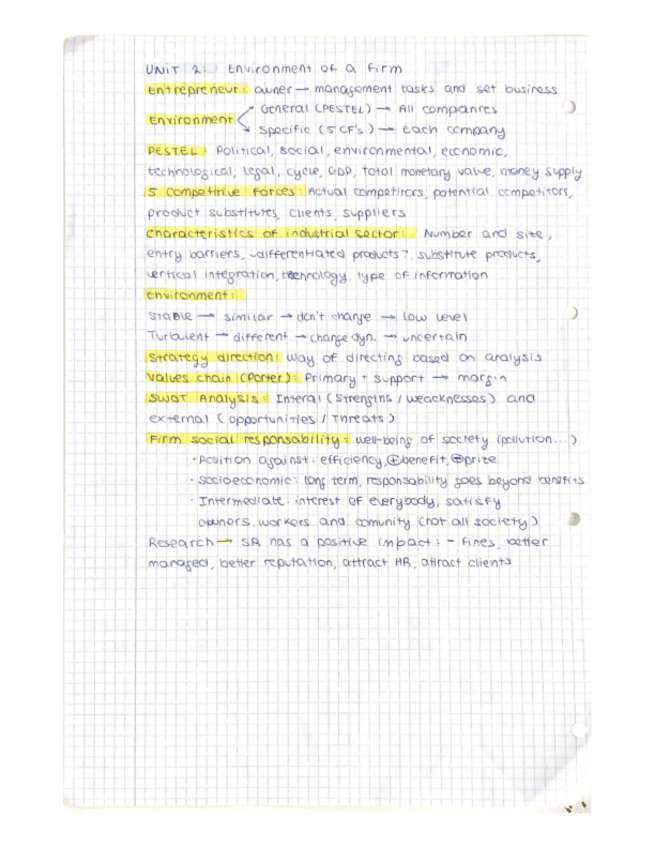 UNIT 2: Environment of a firm
Entrepreneur: owner → management tasks and set business
General (PESTEL) → All companies
Environment
Specific (5 CF's) → each company
PESTEL: Political, social, environmental, economic,
technological, legal, cycle, GDP, total monetary value, money supply
5 Competitive Forces: Actual competitors, potential competitors,
product substitutes, clients, suppliers
Characteristics of industrial sector: Number and size,
entry barriers, differentiated products?, substitute products,
vertical integration, technology, type of information
Environment:
Stable → similar → don't change → low level
Turbulent → different → change dyn. → uncertain
Strategy direction: Way of directing based on analysis
Values chain (Porter): Primary + support → margin
SWOT Analysis: Interal (Strengths / Weacknesses) and
external (opportunities / Threats)
Firm social responsability: well-being of society (pollution...)
· Position against: efficiency, ⊕benefit, ⊖prize
· Socioeconomic: long term, responsability goes beyond benefits
· Intermediate: interest of everybody, satisfy
owners, workers and comunity (not all society)
Research → SR has a positive impact: - fines, better
managed, better reputation, attract HR, attract clients